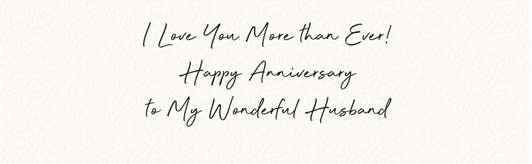 I Love You More than Ever!
Happy Anniversary
to My Wonderful Husband